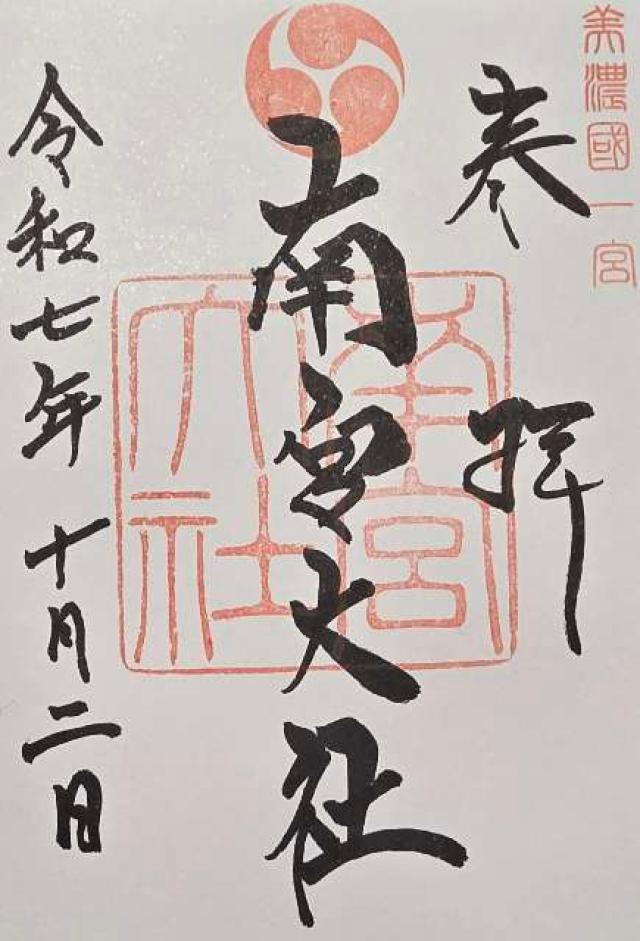 美濃國一宮
奉拝
南宮大社
南宮大社
令和七年十月二日